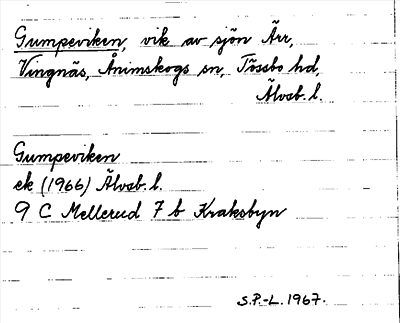 Gumpeviken, vik av sjön Ärr,
Vingnäs, Ånimskogs sn, Tössbo hd,
Älvsb. l.
Gumpeviken
ek (1966) Älvsb. l.
9 C Mellerud 7 b Kraksbyn
S.P.-L. 1967.